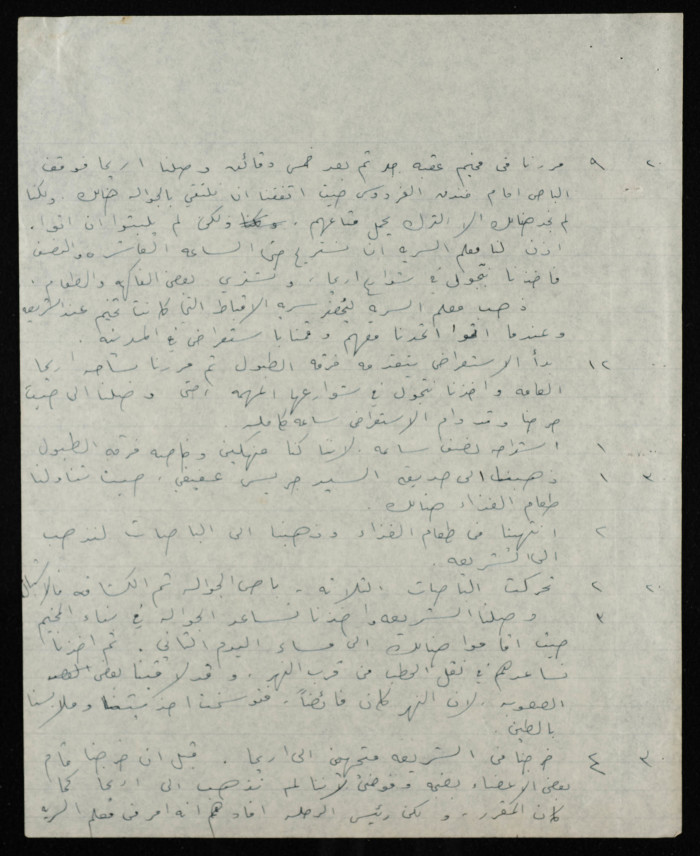 ٩ ٢٠ مررنا في مخيم عقبة جبر ثم بعد خمس دقائق وصلنا اريحا فوقف
الباص امام فندق الفردوس حيث اتفقنا ان نلتقي بالجواله هنالك. ولكننا
لم نجد هنالك الا الترك يحمل متاعهم. ولكن لم يلبثوا ان اتوا.
اذن لنا معلم السريه ان نستريح حتى الساعه العاشره والنصف
فاخذنا نتجول في شوارع اريحا، ونشتري بعض الفاكهه والطعام.
ذهب معلم السريه ليحضر سريه الاقباط التي كانت تخيم عند الشريعه
وعندما اتوا اتحدنا معهم وقمنا باستعراض في المدينه.
١٢ بدأ الاستعراض يتقدمه فرقه الطبول ثم مررنا بساحه اريحا
العامه واخذنا نتجول في شوارعها المهمه حتى وصلنا الى حيث
خرجنا وقد دام الاستعراض ساعه كامله.
١ استراحه نصف ساعه لاننا كنا منهكين وخاصه فرقه الطبول
١ ٣٠ ذهبنا الى حديقه السيد جريس عفيفي. حيث تناولنا
طعام الغذاء هنالك.
٢ انتهينا من طعام الغذاء وذهبنا الى الباصات لنذهب
الى الشريعه.
٢ ٢٠ تحركت الباصات الثلاثه. باص الجواله ثم الكشافه فالاشبال
٣ وصلنا الشريعه واخذنا نساعد الجواله في بناء المخيم
حيث اقاموا هنالك الى مساء اليوم الثاني. ثم اخذنا
نساعدهم في نقل الحطب من قرب النهر. وقد لاقينا بعض
الصعوبه لان النهر كان فائضاً. فتوسخت احذيتنا وملابسنا
بالطين.
٤ ٣٠ خرجنا من الشريعه متجهين الى اريحا. قبل ان خرجنا قام
بعض الاعضاء بضجه وفوضى لاننا لم نذهب الى اريحا كما
كان المقرر. ولكن رئيس الرحله افادهم انه امر من معلم السريه